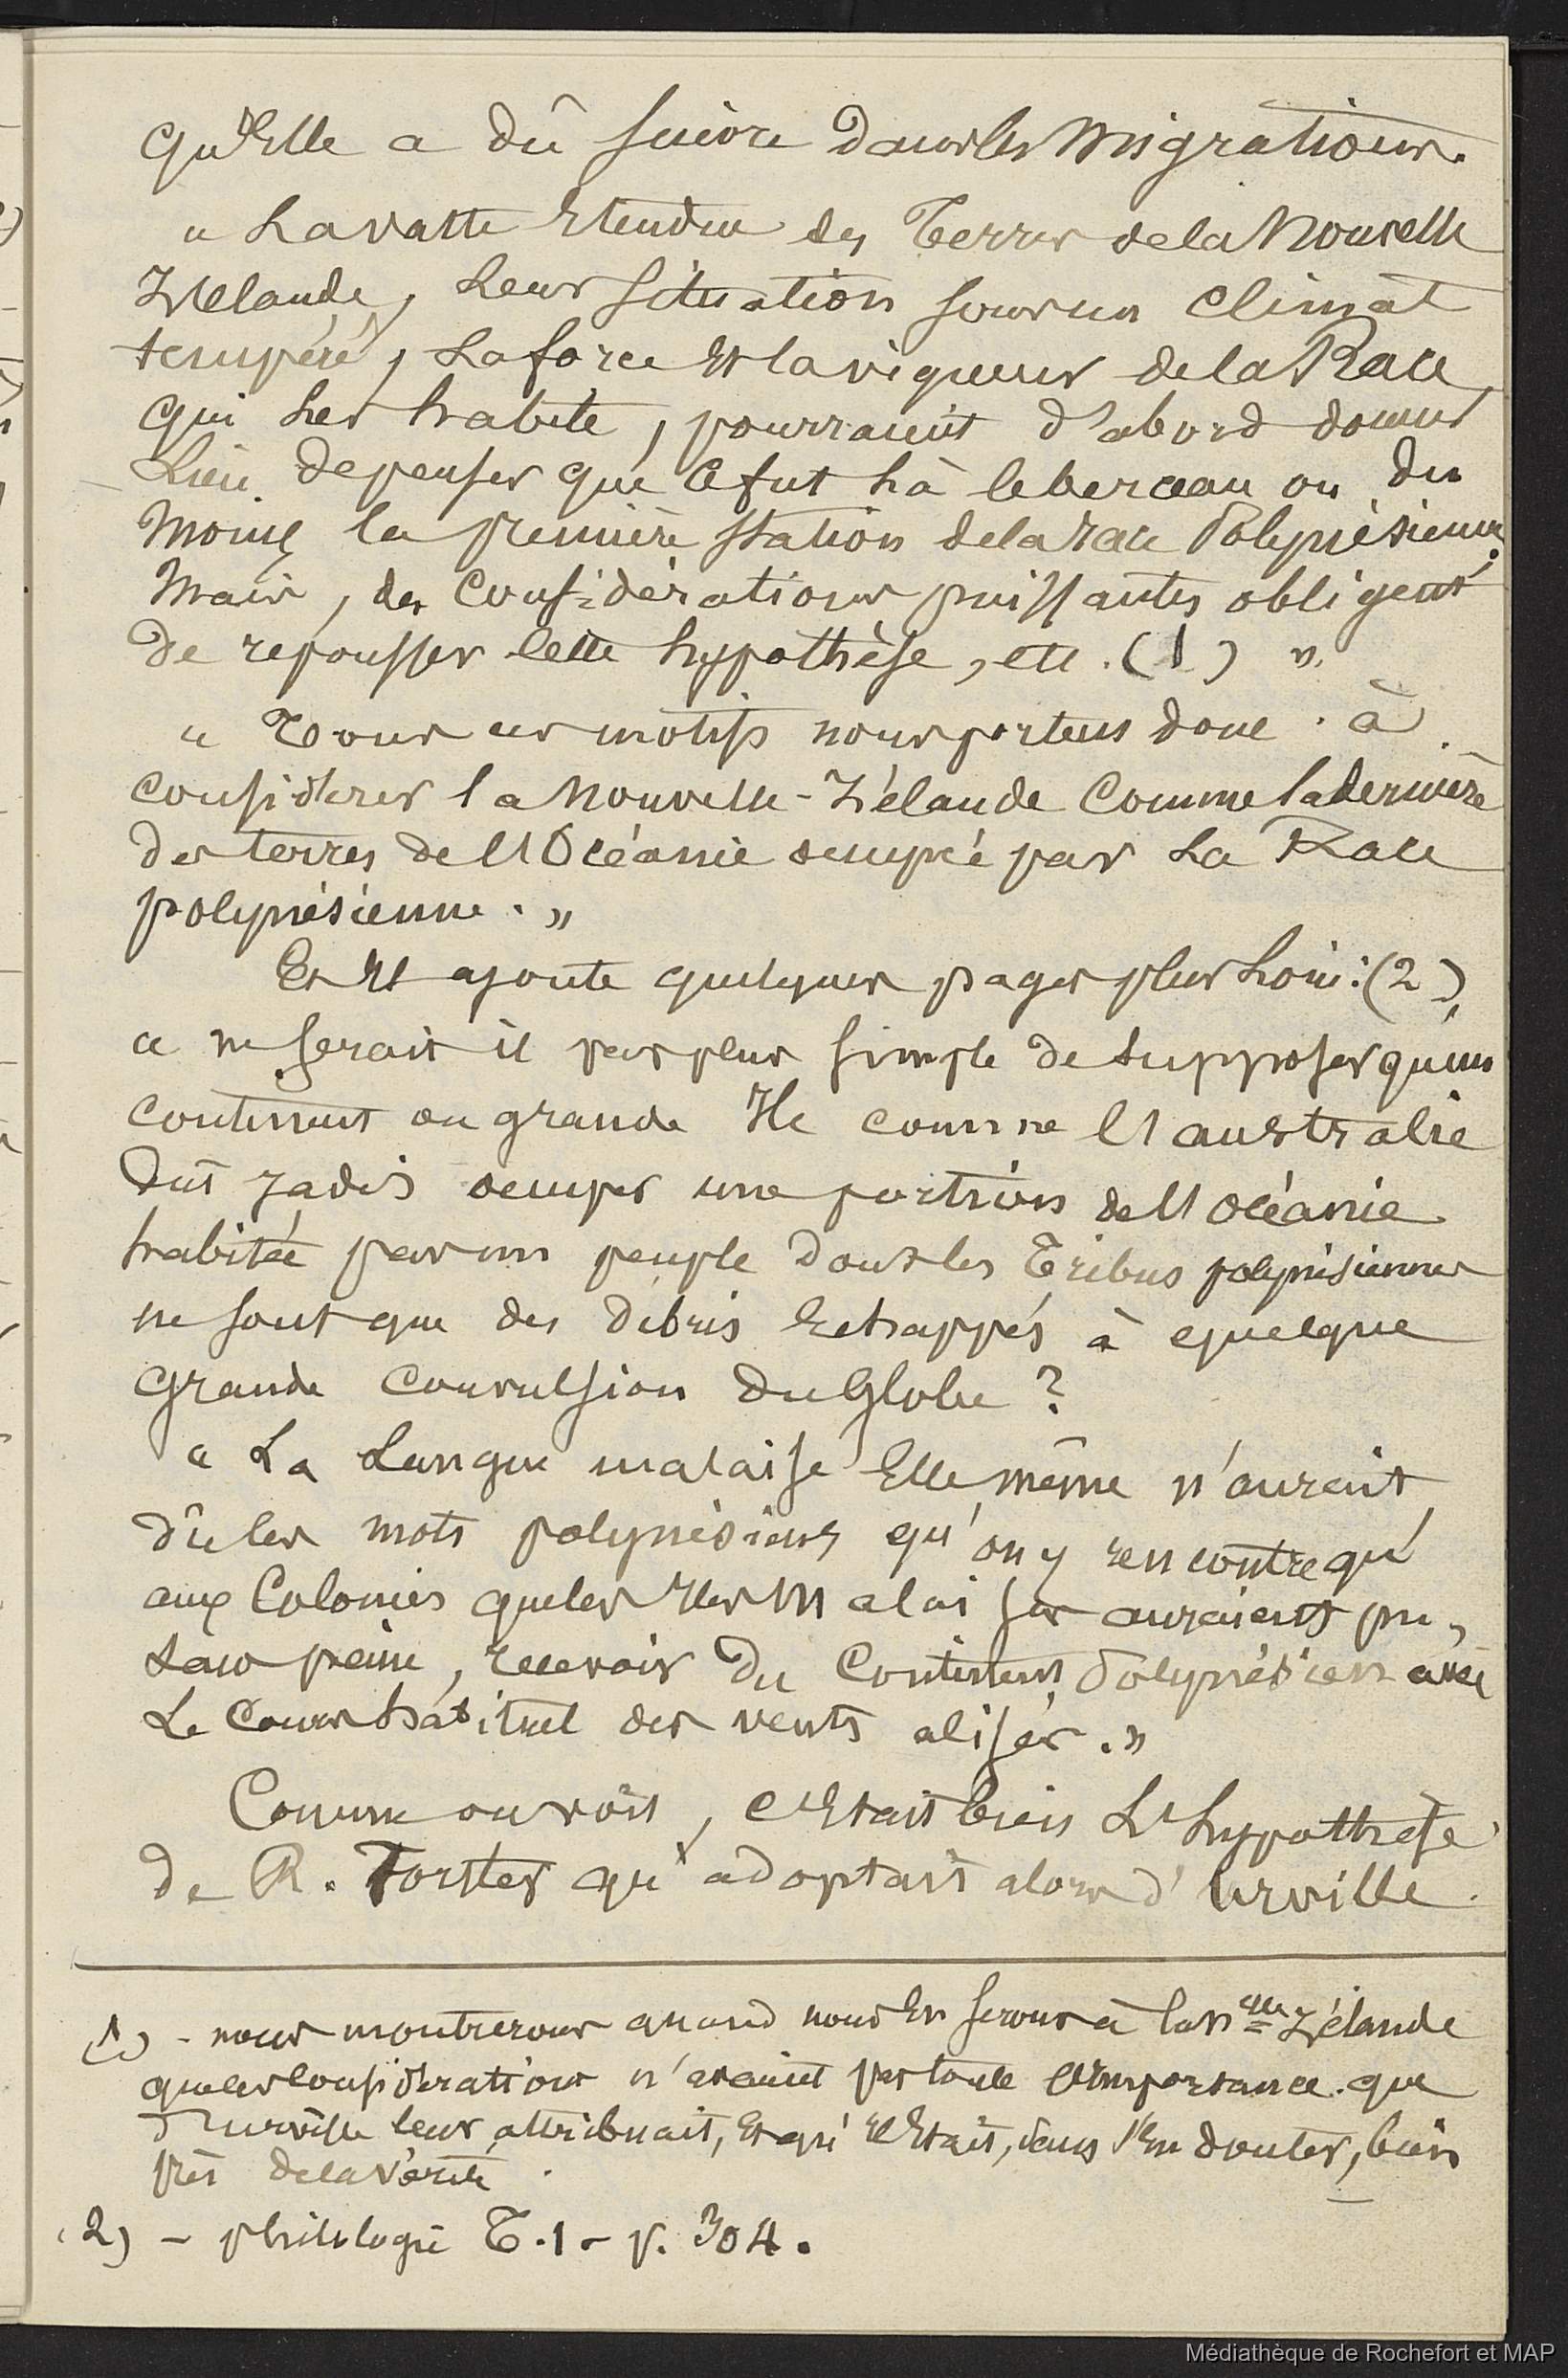 qu'Elle a dû suivre dans les Migrations.
" La vaste Etendue des Terres de la Nouvelle
Zélande, Leur situation sous un Climat
tempéré, La force Et la vigueur de la Race
qui Les habite, pourraient d'abord donner
Lieu de penser que Ce fut Là le berceau ou du
Moins la première Station de la race Polynésienne;
Mais, des Considérations puissantes obligent
De repousser Cette hypothèse, etc. (1) ".
" Tous ces motifs nous portent donc à
Considérer la Nouvelle-Zélande Comme la dernière
des terres de l'Océanie occupée par La Race
polynésienne. "
Et Il ajoute quelques pages plus Loin: (2)
" ne serait il pas plus simple de supposer qu'un
Continent ou grande Ile comme l'australie
Dut jadis occuper une portion de l'océanie
habitée par un peuple Dont les Tribus polynésiennes
ne sont que des débris Echappés à quelque
Grande Convulsion Du Globe ?
" La Langue malaise Elle même n'aurait
dû les mots polynésiens qu'on y rencontre qu'
aux Colonies que les Iles Malaises auraient pu,
sans peine, recevoir Du Continent Polynésien avec
Le Cours habituel des vents alisés. "
Comme on voit, c'était bien L'hypothèse
de R. Forster qu'adoptait alors d'Urville.
(1) - nous montrerons quand nous En serons à la Nelle Zélande
que ces Considérations n'avaient pas toute l'Importance que
D'Urville leur attribuait, Et qu'il Etait, sans s'En douter, bien
près de la Vérité.
(2) - philologie T. 1 - p. 304.
Médiathèque de Rochefort et MAP